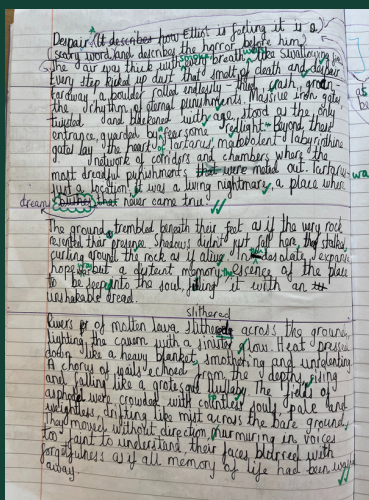 Despair. (It describes how Elliot is feeling it is a
scary word) and describes the horror before him.
The air was thick with smoke breath was like swallowing
Every step kicked up dust that smelt of death and despair
a boulder rolled endlessly crash, groan
the rhythm of eternal punishment. Massive iron gates
twisted and blackened with age, stood as the only
entrance, guarded by fearsome Beyond, these
gates lay the heart of Tartarus, labyrinthine
network of corridors and chambers where the
most dreadful punishments were meted out. Tartarus
just a location, it was a living nightmare, a place where
dream never came true.
The ground trembled beneath their feet as if the very rock
resented their presence. Shadows didn't just fall here, they stalked,
curling around the rock as if alive. In desolate
hope was but a distant memory, the essence of the place
to be seep into the soul, filling it with an
unshakable dread.
slithered
Rivers of molten lava across the ground,
lighting the cavern with a sinister glow. Heat pressed
down like a heavy blanket, smothering and unrelenting.
A chorus of wails echoed from the depths, rising
and falling like a grotesque lullaby. The fields of
asphodel were crowded with countless souls, pale and
weightless, drifting like mist across the bare ground.
They moved without direction, murmuring in voices
too faint to understand, their faces blurred with
forgetfulness as if all memory of life had been
away.
as
be
wa